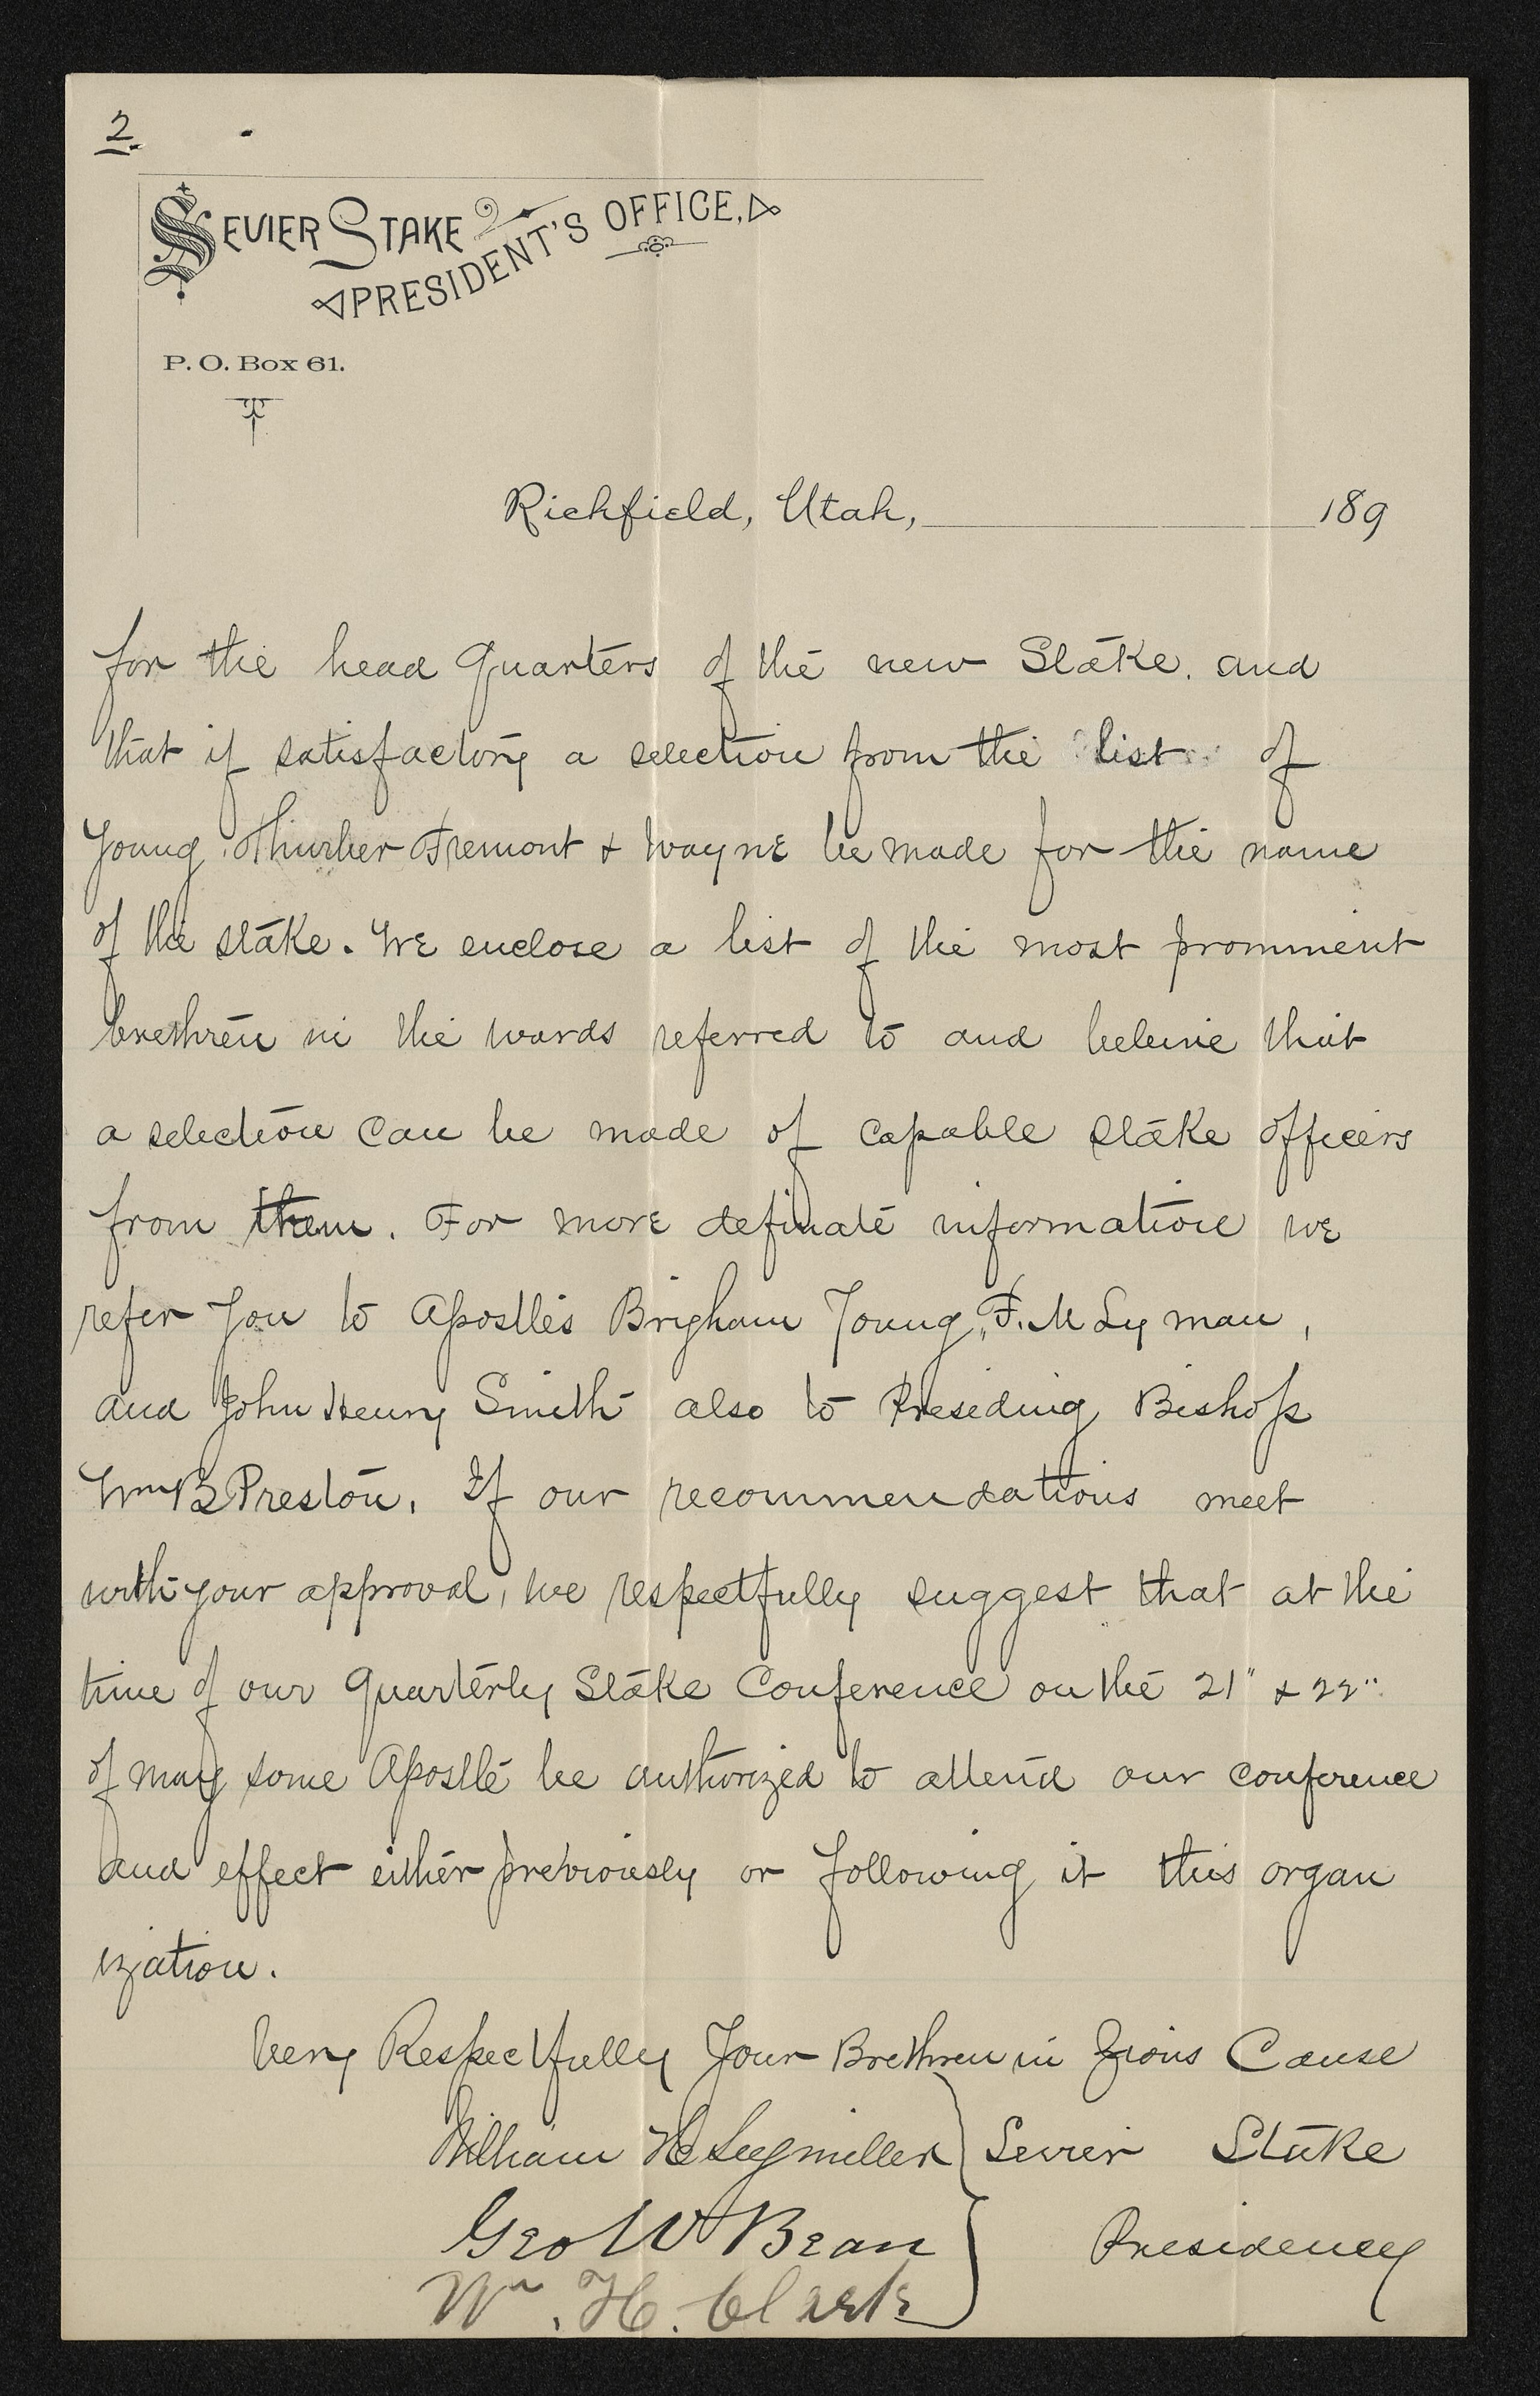 2.
SEVIER STAKE
PRESIDENT'S OFFICE,
P. O. Box 61.
Richfield, Utah, 189
for the head Quarters of the new Stake. and
that if satisfactory a selection from the list of
Young Thurber Fremont & Wayne be made for the name
of the stake. We enclose a list of the most prominent
brethren in the wards referred to and beleive that
a selection can be made of capable stake officers
from them. For more definate information we
refer you to Apostles Brigham Young, F. M Lyman,
and John Henry Smith also to Preseding Bishop
Wm B Preston. If our recommendations meet
with your approval, we respectfully suggest that at the
time of our Quarterly Stake Conference on the 21" & 22"
of may some Apostle be authorized to attend our conference
and effect either previously or following it this organ
ization.
Very Respectfully Your Brethren in Zions Cause
William H Seegmiller } Sevier Stake
Geo W Bean } Presidency
Wm. H. Clark